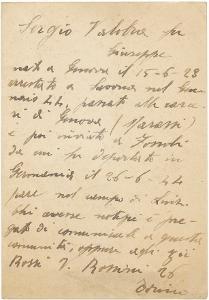 Sergio Valobra fu
Giuseppe
nato a Genova il 15-6-23
arrestato a Savona nel Gen
naio 44, passato alle carce
ri di Genova (Marassi)
e poi inviato a Fossoli
da cui fu deportato in
Germania il 26-6-44
pare nel campo di
chi avesse notizie è pre
gato di comunicarle a questa
comunità, oppure agli zii
Rossi V. Rossini 26
Torino